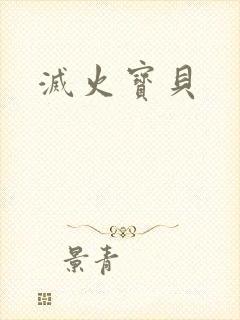 滅火寶貝
景青